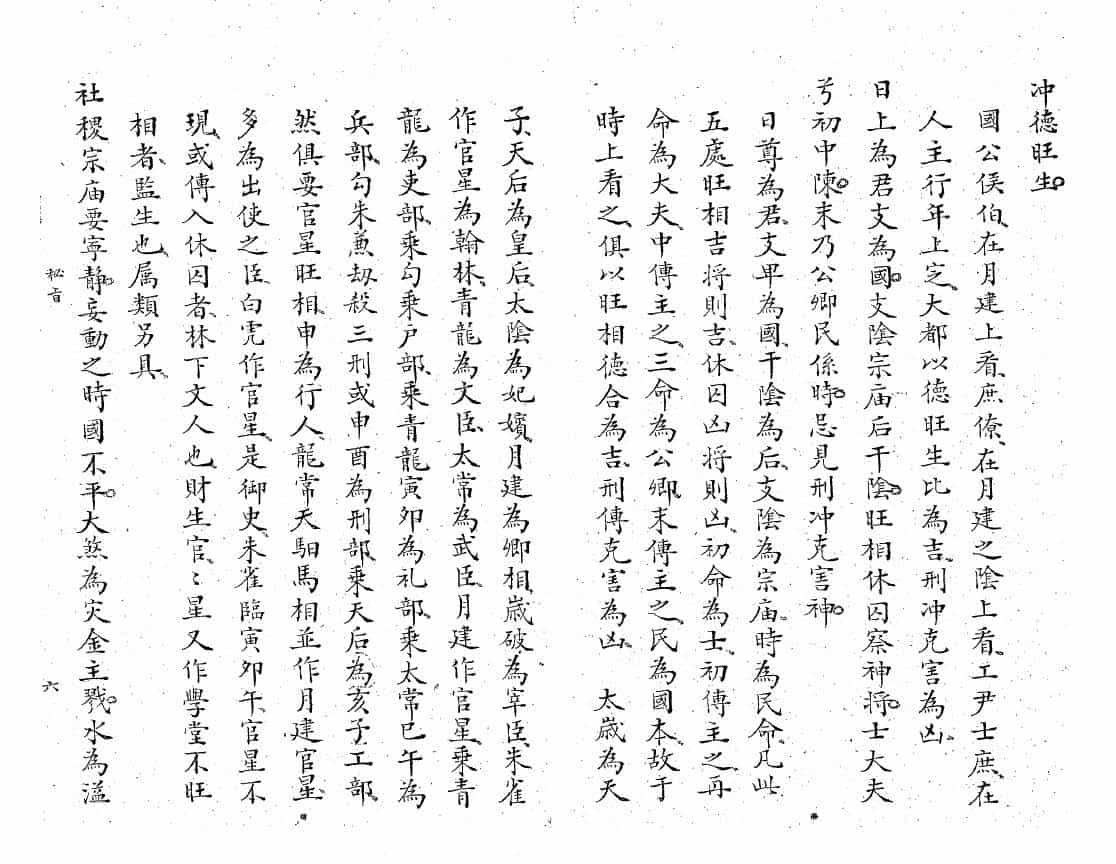 冲德旺生。
國公侯伯、在月建上看、庶僚、在月建之陰上看、工尹士庶、在
人主行年上定、大都以德旺生比為吉、刑冲克害為凶、
日上為君支為國。支陰宗庙后干陰。旺相休囚察神将。士大夫
兮初中陳。末乃公卿民係時。忌見刑冲克害神。
日尊為君、支卑為國、干陰為后、支陰為宗庙、時為民命、凡此
五處旺相吉将則吉、休囚凶将則凶、初命為士、初傳主之、再
命為大夫、中傳主之、三命為公卿、末傳主之、民為國本、故于
時上看之、俱以旺相德合為吉、刑傳克害為凶、　太歲為天
子、天后為皇后、太陰為妃嬪、月建為卿相、歲破為宰臣、朱雀
作官星為翰林、青龍為文臣、太常為武臣、月建作官星、乘青
龍為吏部、乘勾乘户部、乘青龍寅卯為礼部、乘太常巳午為
兵部、勾朱焘刼殺三刑或申酉為刑部、乘天后為亥子工部、
然俱要官星旺相、申為行人、龍常天馹馬相並作月建官星、
多為出使之臣、白虎作官星、是御史、朱雀臨寅卯午、官星不
現、或傳入休囚者、林下文人也、財生官、〻星又作學堂不旺
相者、監生也、属類另具、
社稷宗庙要寧静。妄動之時國不平。大煞為灾金主戮。水為溢
秘旨
六